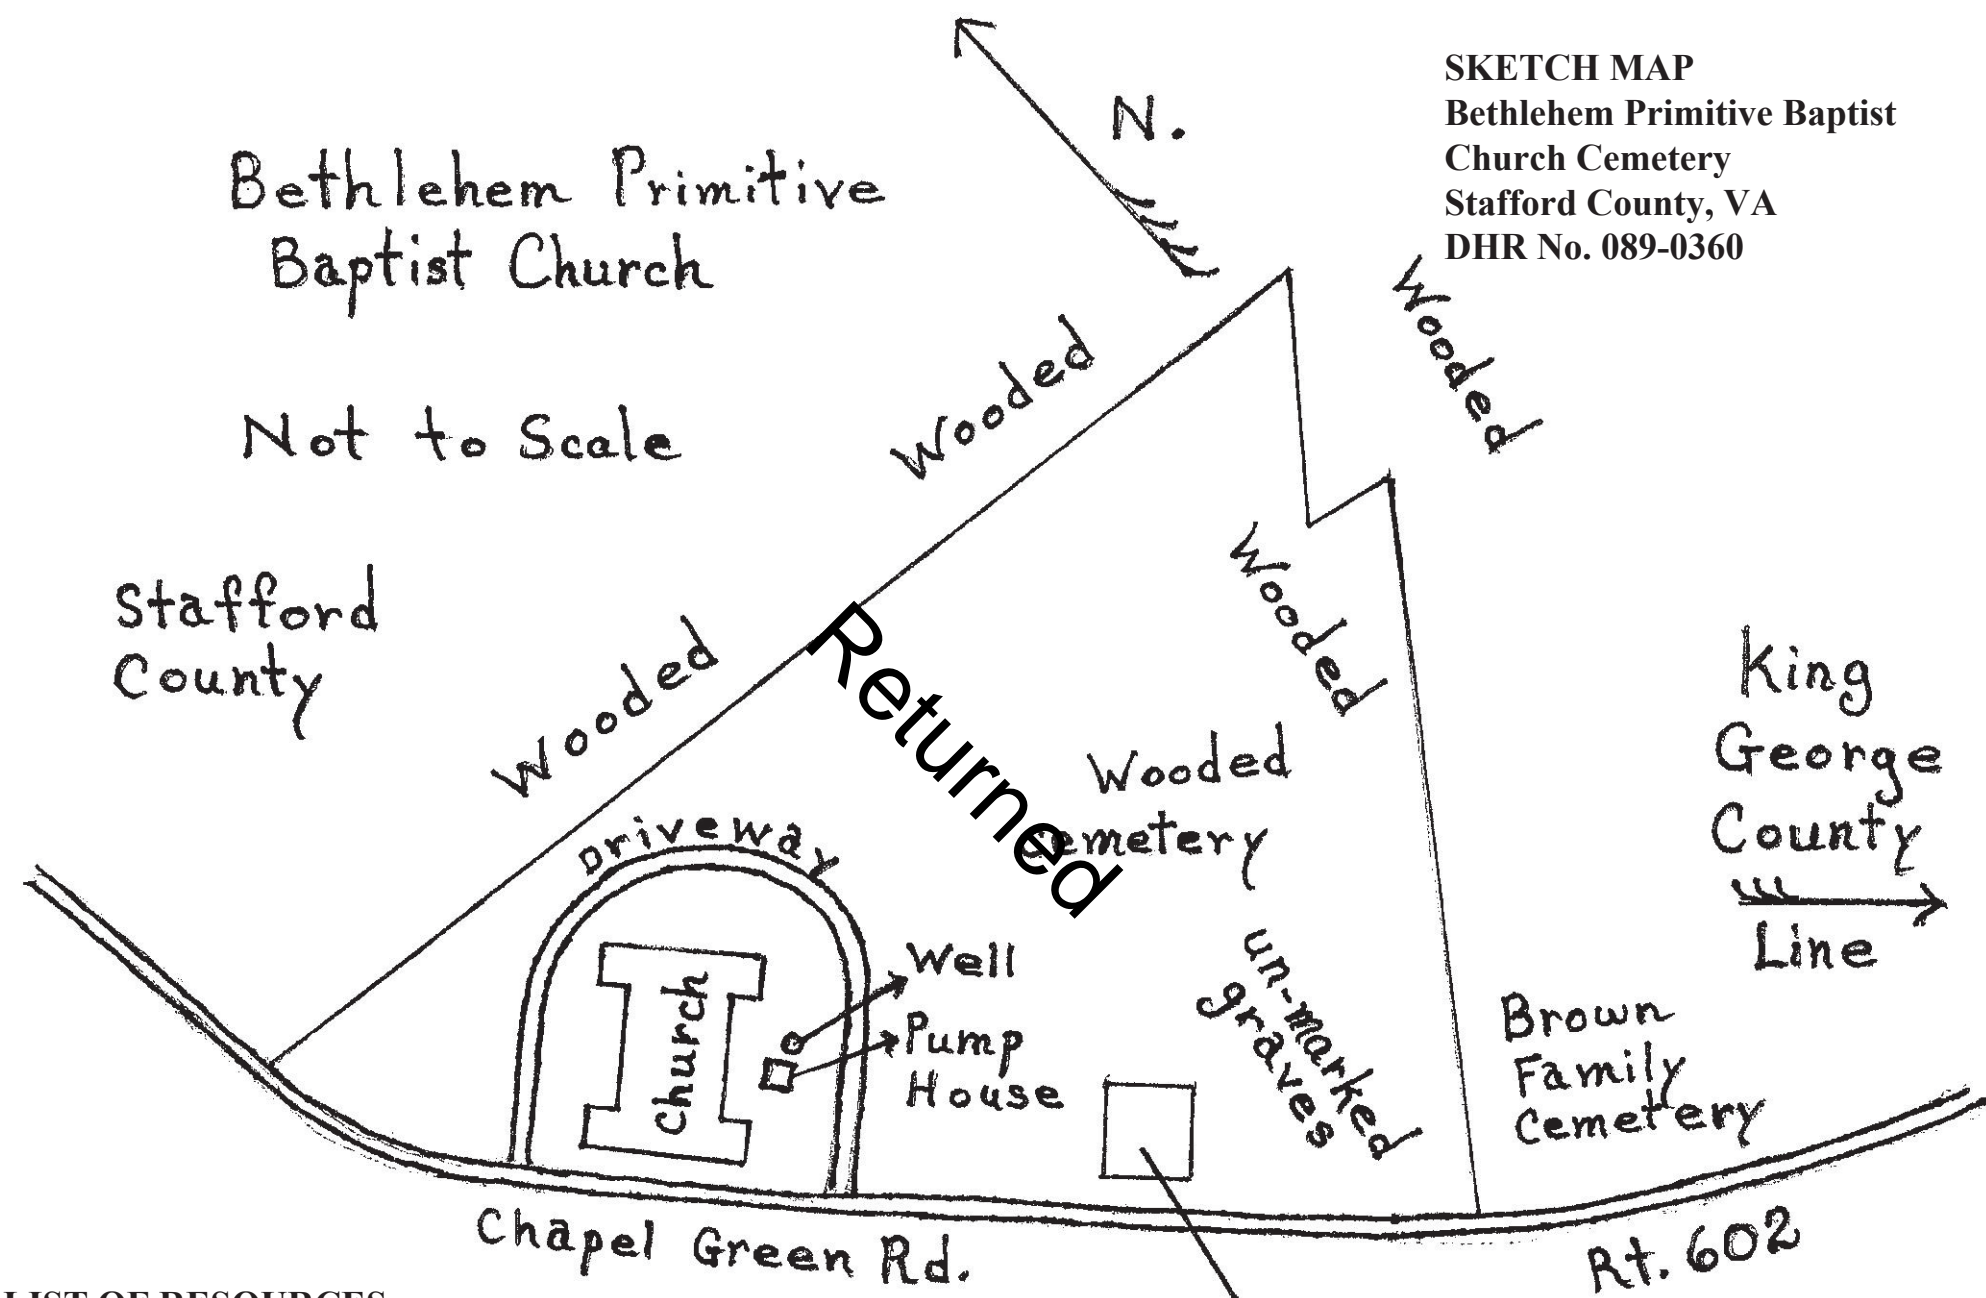 SKETCH MAP
Bethlehem Primitive Baptist
Church Cemetery
Stafford County, VA
DHR No. 089-0360
N.
Bethlehem Primitive
Baptist Church
Not to Scale
Stafford
County
Wooded
Wooded
Wooded
Wooded
Wooded
Cemetery
Returned
King
George
County
Line
Driveway
Church
Well
Pump
House
un-marked
graves
Brown
Family
Cemetery
Chapel Green Rd.
Rt. 602
LIST OF RESOURCES